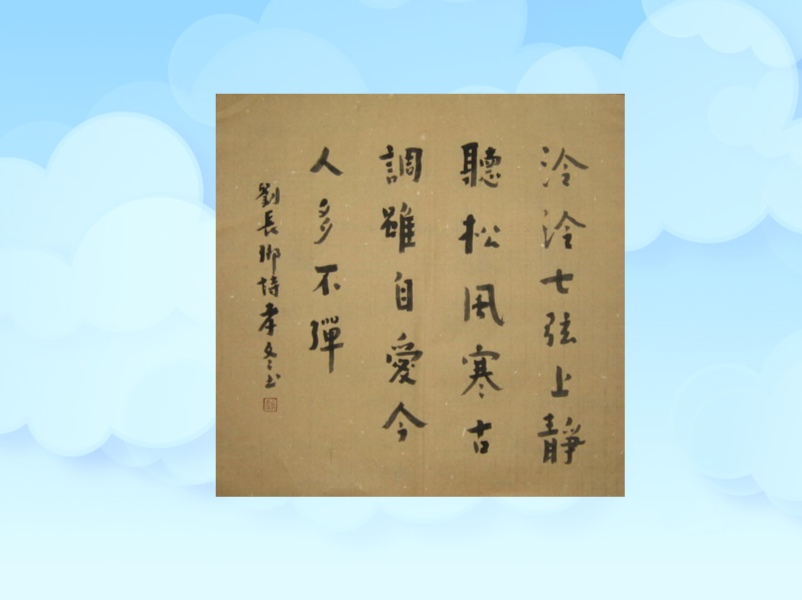 泠泠七弦上靜
聽松風寒古
調雖自愛今
人多不彈
劉長卿詩